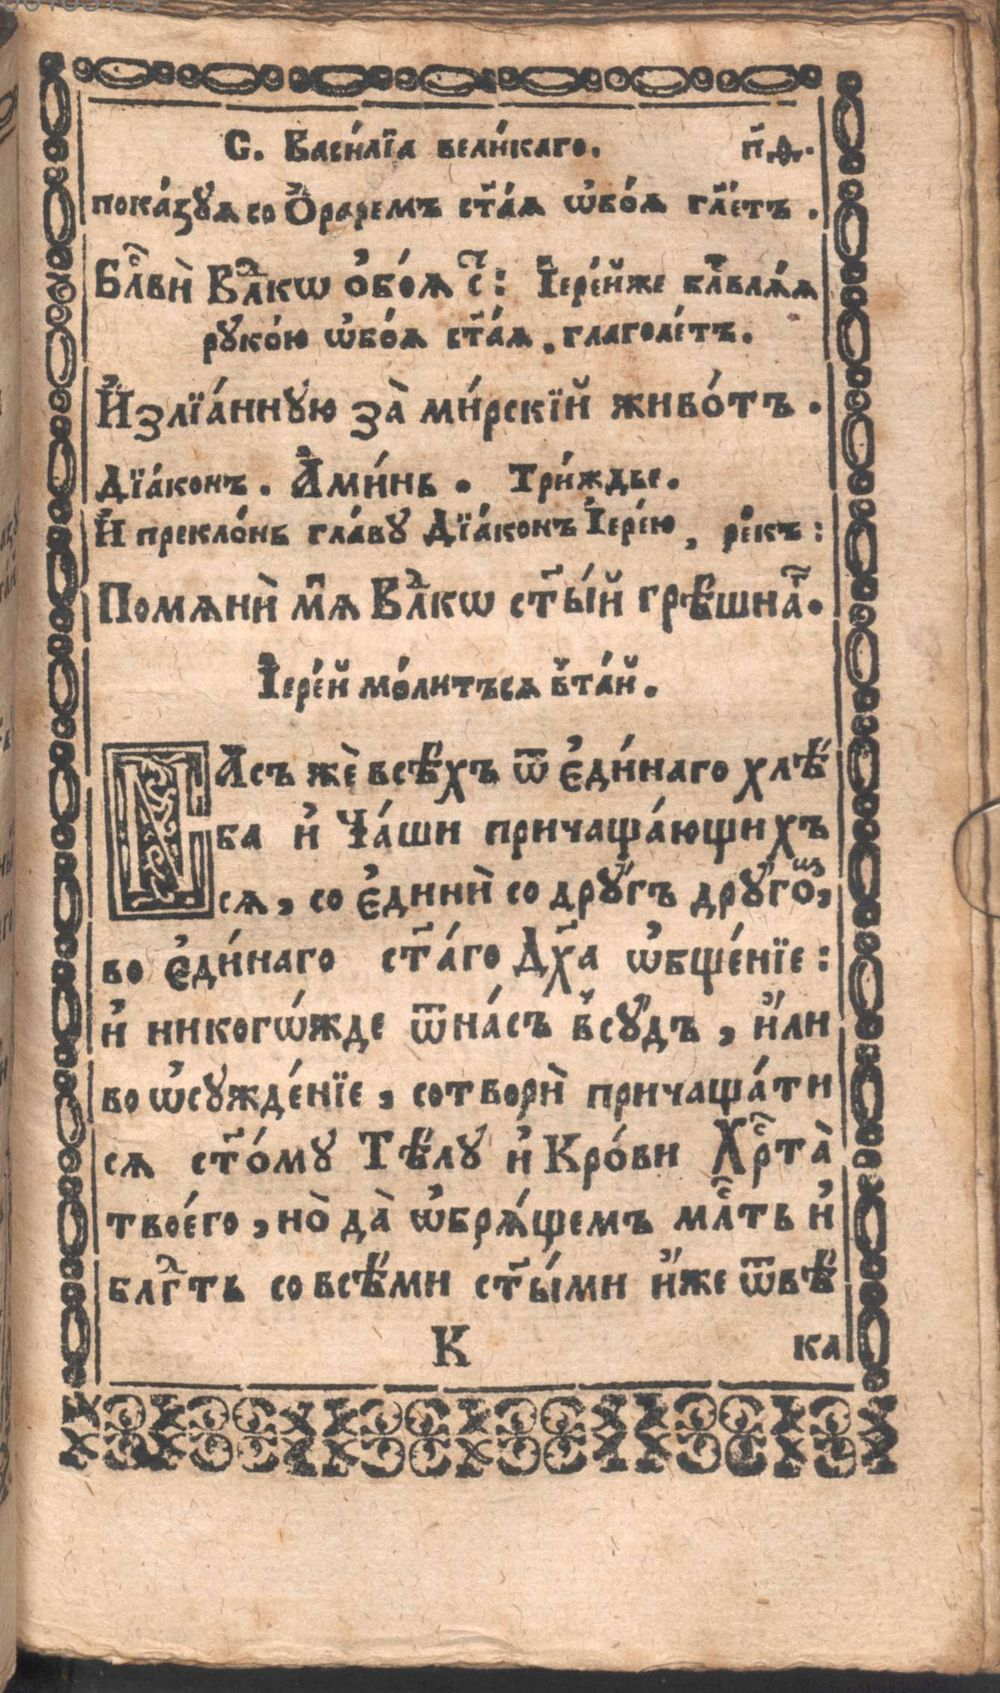 С. Васи́лїа вели́каго.
пока́зꙋѧ со Ѻ҆раремъ ст҃а́ѧ ѡ҆бо́ѧ гл҃етъ .
Бл҃ви̇̀ Вл҃кѡ о҆бо́ѧ с̑: І҆ере́йже бл҃влѧ́ѧ
рꙋко́ю ѡ҆бо́ѧ ст҃а́ѧ . глаголе́тъ.
И҆злїѧ́ннꙋю за̀ ми́рскїй живо́тъ .
Дїа́конъ . А҆ми́нь . Три́ждье.
И҆ прекло́нь гла́вꙋ Дїа́конъ І҆ере́ю , ре́къ :
Помѧни̇̀ мѧ̀ Вл҃кѡ ст҃ы́й грѣ́шнаⷢ.
І҆ере́й мо́литъсѧ в̾та́й .
Насъ жѐ всѣ́хъ ѿ є҆ди́наго хлѣ́
ба и҆ Ча́ши причаща́ющихъ
сѧ , со є҆дини̇̀ со дрꙋ́гъ дрꙋ́гоⷨ,
во є҆ди́наго ст҃а́го Дх҃а ѡ҆бще́нїе :
и҆ никогѡ́жде ѿна́съ в̾сꙋ́дъ , и҆́ли
во ѡ҆сꙋжде́нїе , сотвори̇̀ причаща́ти
сѧ ст҃о́мꙋ Тѣ́лꙋ и҆ Кро́ви Хрⷭ҇та̀
твоего , но̀ да̀ ѡ҆брѧ́щемъ млⷭ҇ть и҆
блгⷣть со всѣ́ми ст҃ы́ми и҆́же ѿвѣ́
К ка